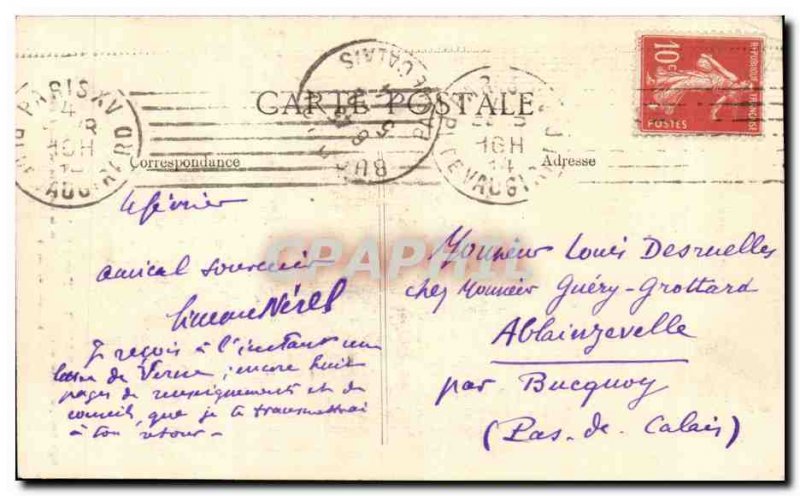 PARIS XV
R. DE VAUGIRARD
16H
BUCQUOY
PAS DE CALAIS
PARIS XV
R. DE VAUGIRARD
16H
14
10c
POSTES
CARTE POSTALE
Correspondance
Adresse
4 février
amical souvenir
Simone Nérel
Je reçois à l'instant une
lettre de Verne, encore huit
pages de renseignements et de
conseils, que je te transmettrai
à ton retour -
CPAPHIL
Monsieur Louis Desruelles
chez Monsieur Guéry-Grottard
Ablainzevelle
par Bucquoy
(Pas-de-Calais)